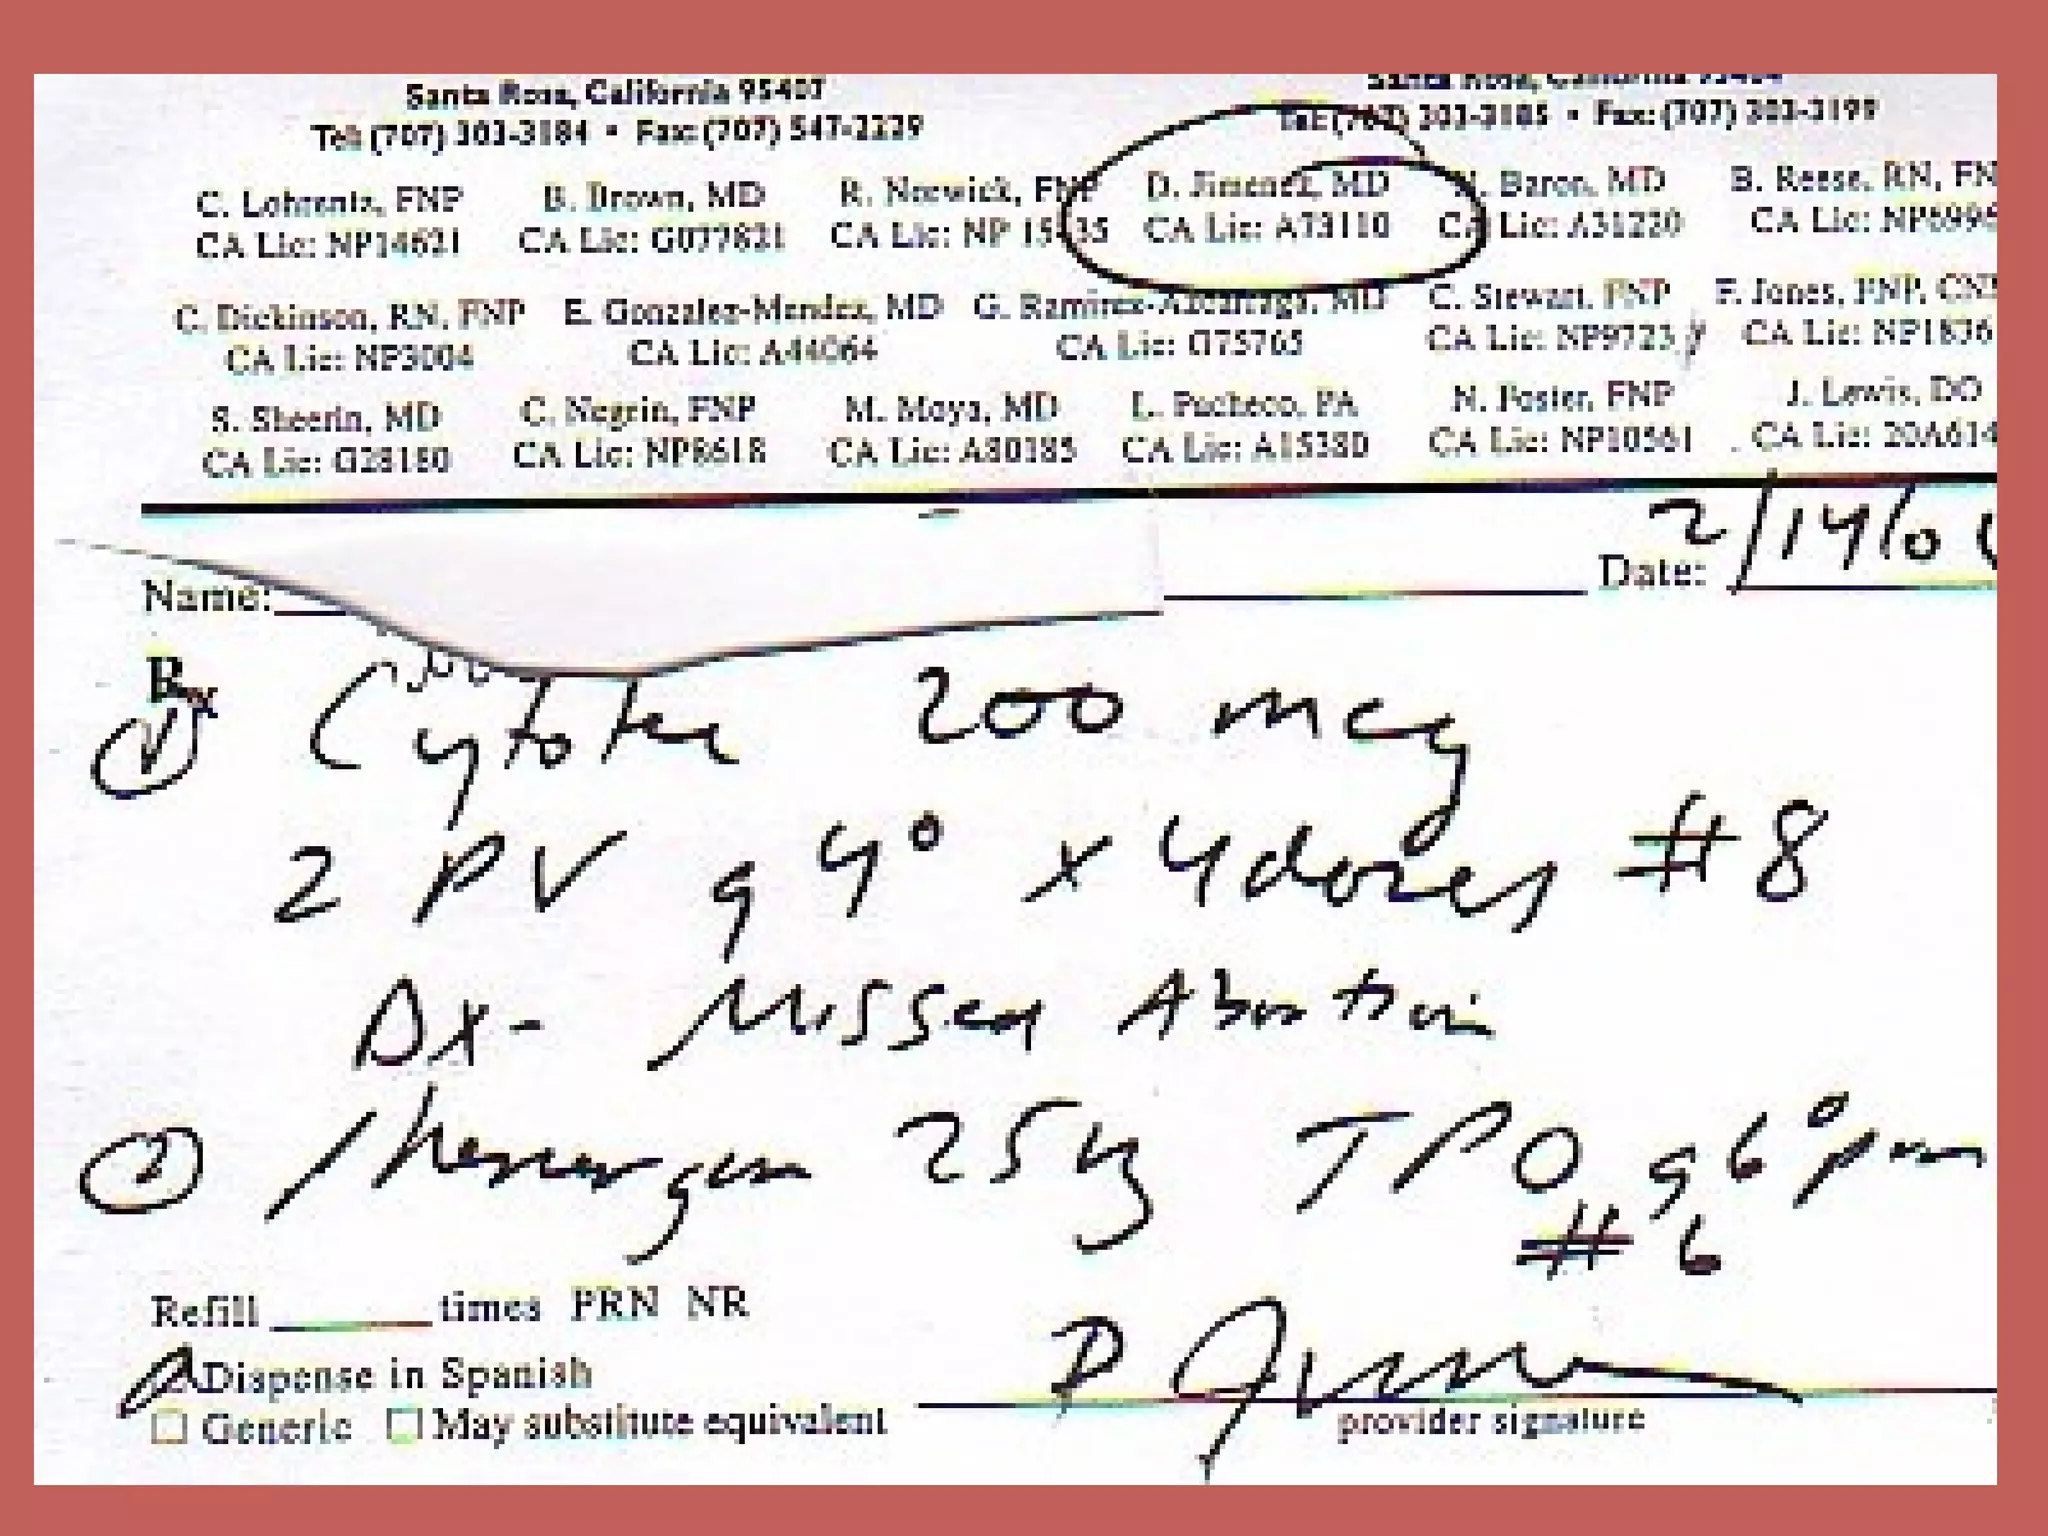 Santa Rosa, California 95407 Santa Rosa, California 95404
Tel: (707) 303-3184 • Fax: (707) 547-2229 Tel: (707) 303-3185 • Fax: (707) 303-3199
C. Lohrentz, FNP B. Brown, MD R. Nerwick, FNP D. Jimenez, MD N. Baron, MD B. Reese, RN, FN
CA Lic: NP14621 CA Lic: G077821 CA Lic: NP 15435 CA Lic: A73110 CA Lic: A31220 CA Lic: NP6996
C. Dickinson, RN, FNP E. Gonzalez-Mendez, MD G. Ramirez- MD C. Stewart, FNP F. Jones, FNP, CN
CA Lic: NP3004 CA Lic: A44064 CA Lic: G75765 CA Lic: NP9723 CA Lic: NP1836
S. Sheerin, MD C. Negrin, FNP M. Moya, MD L. Pacheco, PA N. Foster, FNP J. Lewis, DO
CA Lic: G28180 CA Lic: NP8618 CA Lic: A80385 CA Lic: A15380 CA Lic: NP10561 CA Lic: 20A614
Name: Date: 2/14/0
Rx
1 Cytotec 200 mcg
2 PV q 4° x 4 doses #8
Dx- Missed Abortion
2 Phenergan 25 mg T PO q 6° prn
#6
Refill times PRN NR
Dispense in Spanish
Generic May substitute equivalent
D Jimenez
provider signature